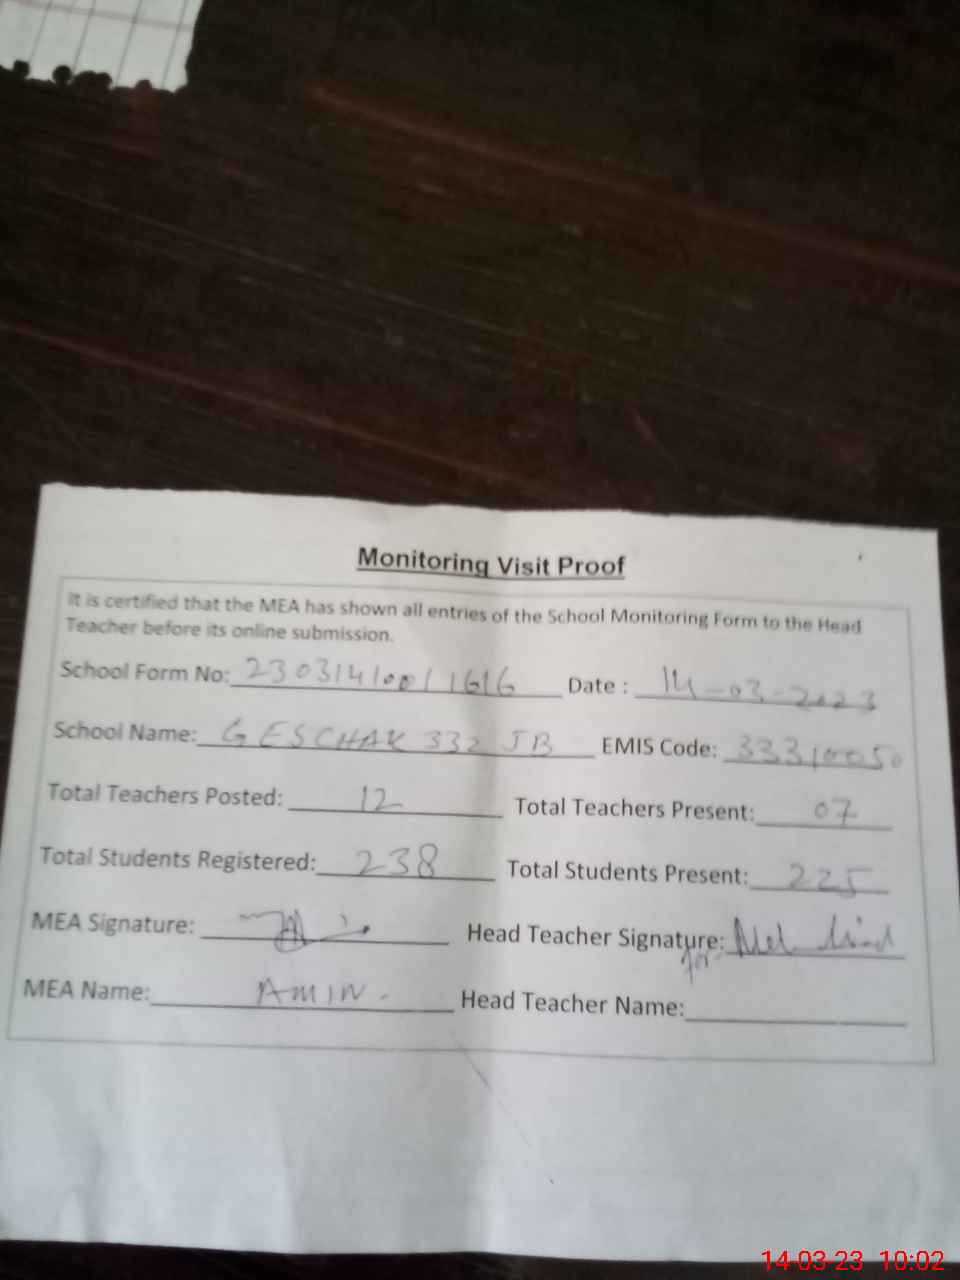 Monitoring Visit Proof
It is certified that the MEA has shown all entries of the School Monitoring Form to the Head
Teacher before its online submission.
School Form No: 23031410011616 Date : 14-03-2023
School Name: GESCHAK 332 JB EMIS Code: 33310050
Total Teachers Posted: 12 Total Teachers Present: 07
Total Students Registered: 238 Total Students Present: 225
MEA Signature: Head Teacher Signature:
for
MEA Name: AMIN. Head Teacher Name:
14-03-23 10:02